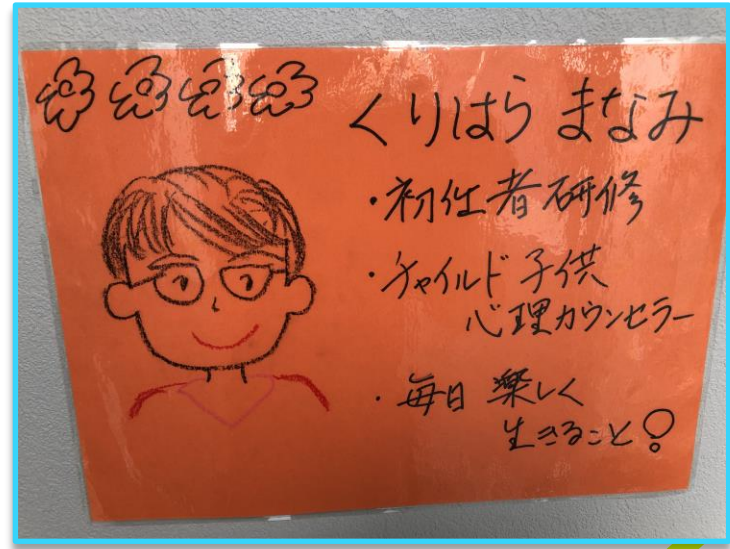 くりはら まなみ
・初任者研修
・チャイルド 子供
心理カウンセラー
・毎日 楽しく
生きること!